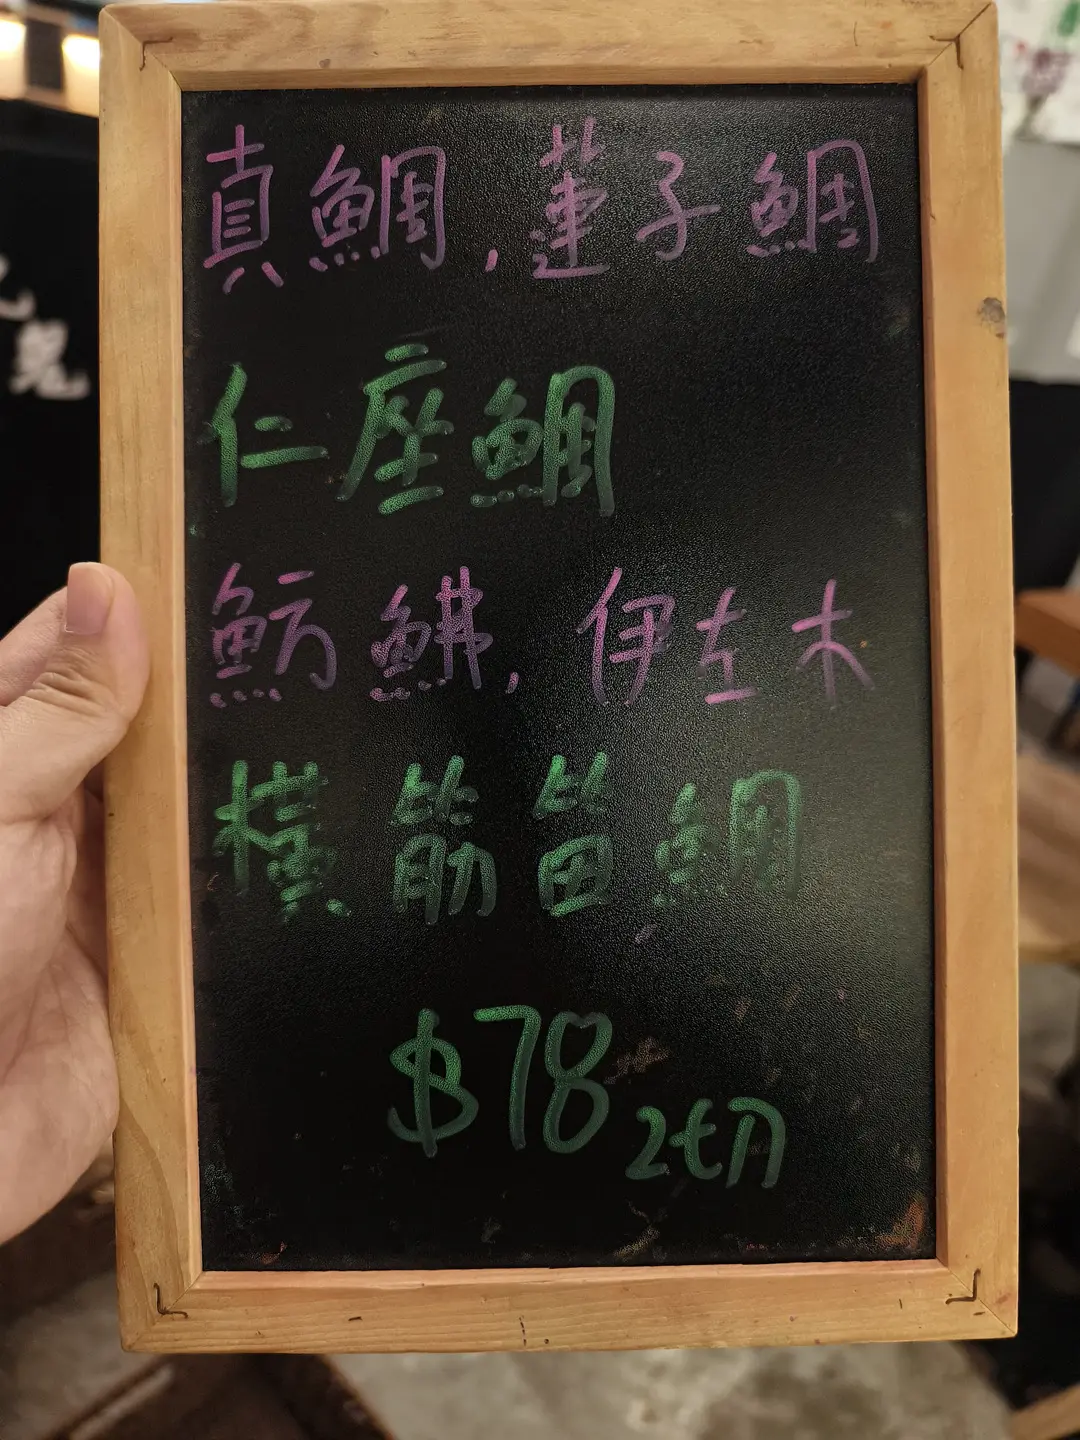 真鯛,蓮子鯛
仁座鯛
魴鮄,伊左木
橫筋笛鯛
$78 2切